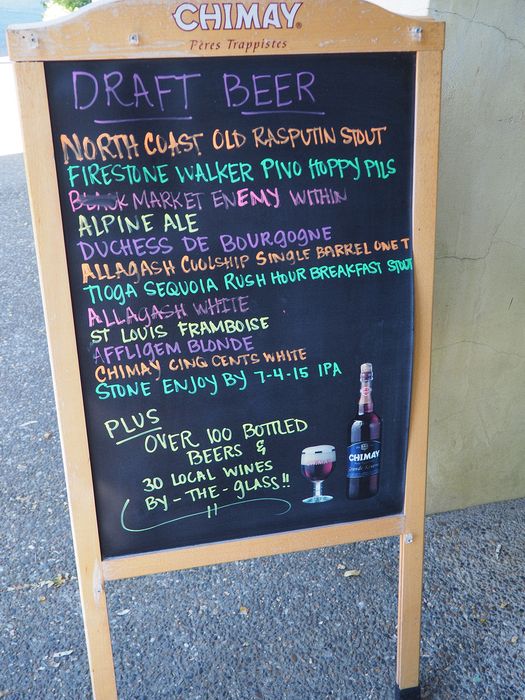 CHIMAY®
Pères Trappistes
DRAFT BEER
NORTH COAST OLD RASPUTIN STOUT
FIRESTONE WALKER PIVO HOPPY PILS
BLACK MARKET ENEMY WITHIN
ALPINE ALE
DUCHESS DE BOURGOGNE
ALLAGASH COOLSHIP SINGLE BARREL ONE T
TIOGA SEQUOIA RUSH HOUR BREAKFAST STOUT
ALLAGASH WHITE
ST LOUIS FRAMBOISE
AFFLIGEM BLONDE
CHIMAY CINQ CENTS WHITE
STONE ENJOY BY 7-4-15 IPA
PLUS
OVER 100 BOTTLED
BEERS &
30 LOCAL WINES
BY-THE-GLASS!!
CHIMAY
Grande Réserve